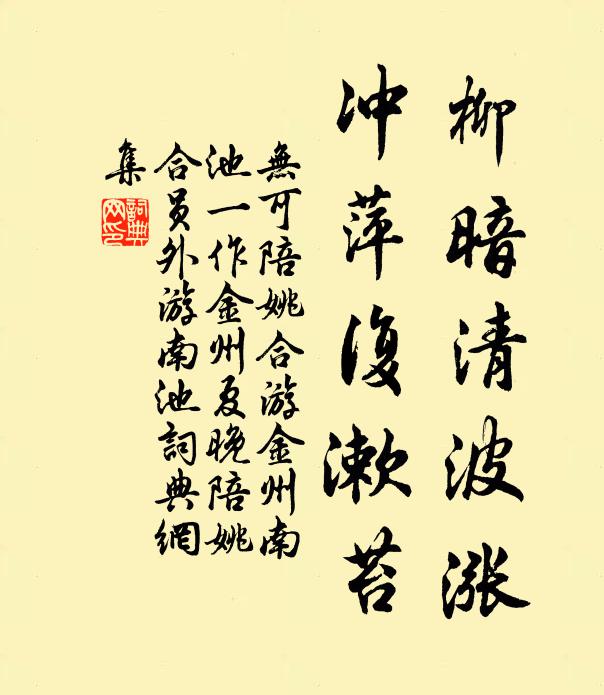 柳暗清波漲
冲萍復漱苔
無可陪姚合游金州南
池一作金州夏晚陪姚
合員外游南池詞典網
集
詞典
网印